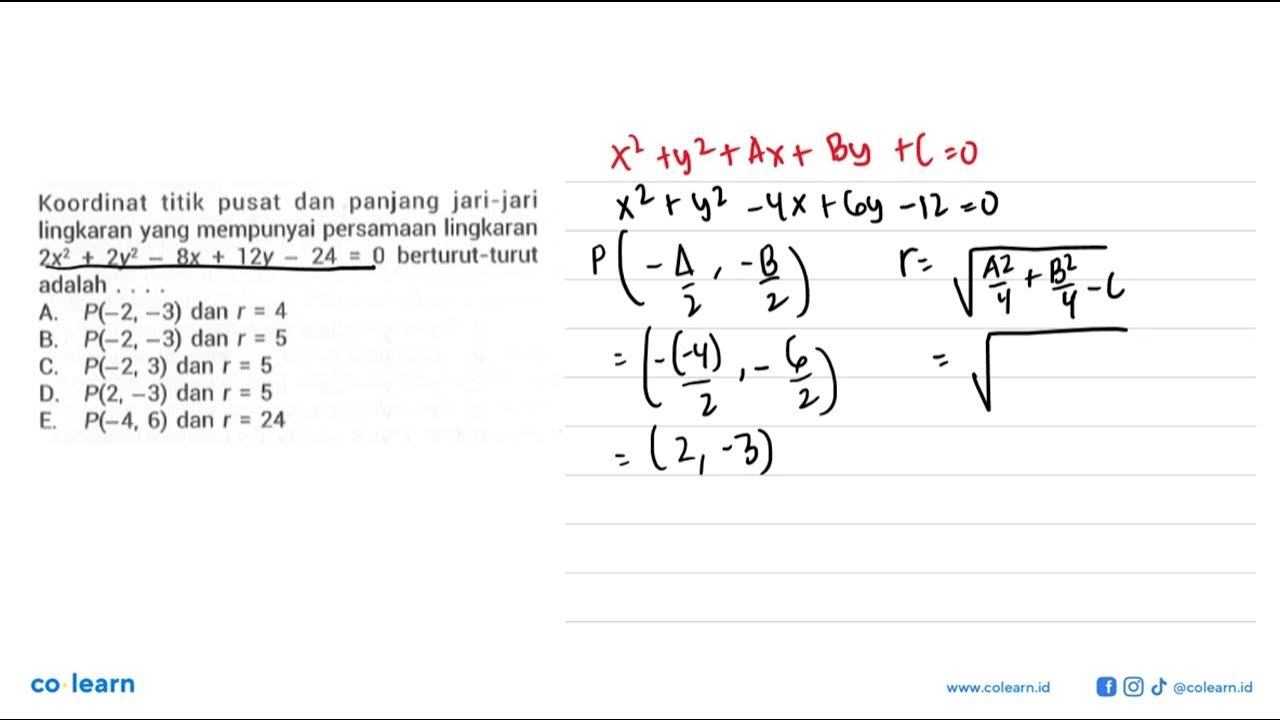 Koordinat titik pusat dan panjang jari-jari
lingkaran yang mempunyai persamaan lingkaran
2x² + 2y² – 8x + 12y – 24 = 0 berturut-turut
adalah . . . .
A. P(–2, –3) dan r = 4
B. P(–2, –3) dan r = 5
C. P(–2, 3) dan r = 5
D. P(2, –3) dan r = 5
E. P(–4, 6) dan r = 24
x² + y² + Ax + By + C = 0
x² + y² – 4x + 6y – 12 = 0
P(–A/2, –B/2)
= (–(–4)/2, –6/2)
= (2, –3)
r = √(A²/4 + B²/4 – C)
= √
co·learn
www.colearn.id
@colearn.id